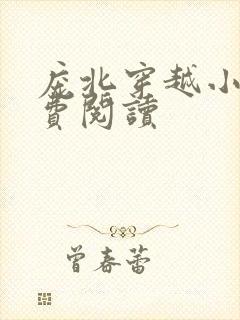 庶北穿越小
費閱讀
曾春蕾